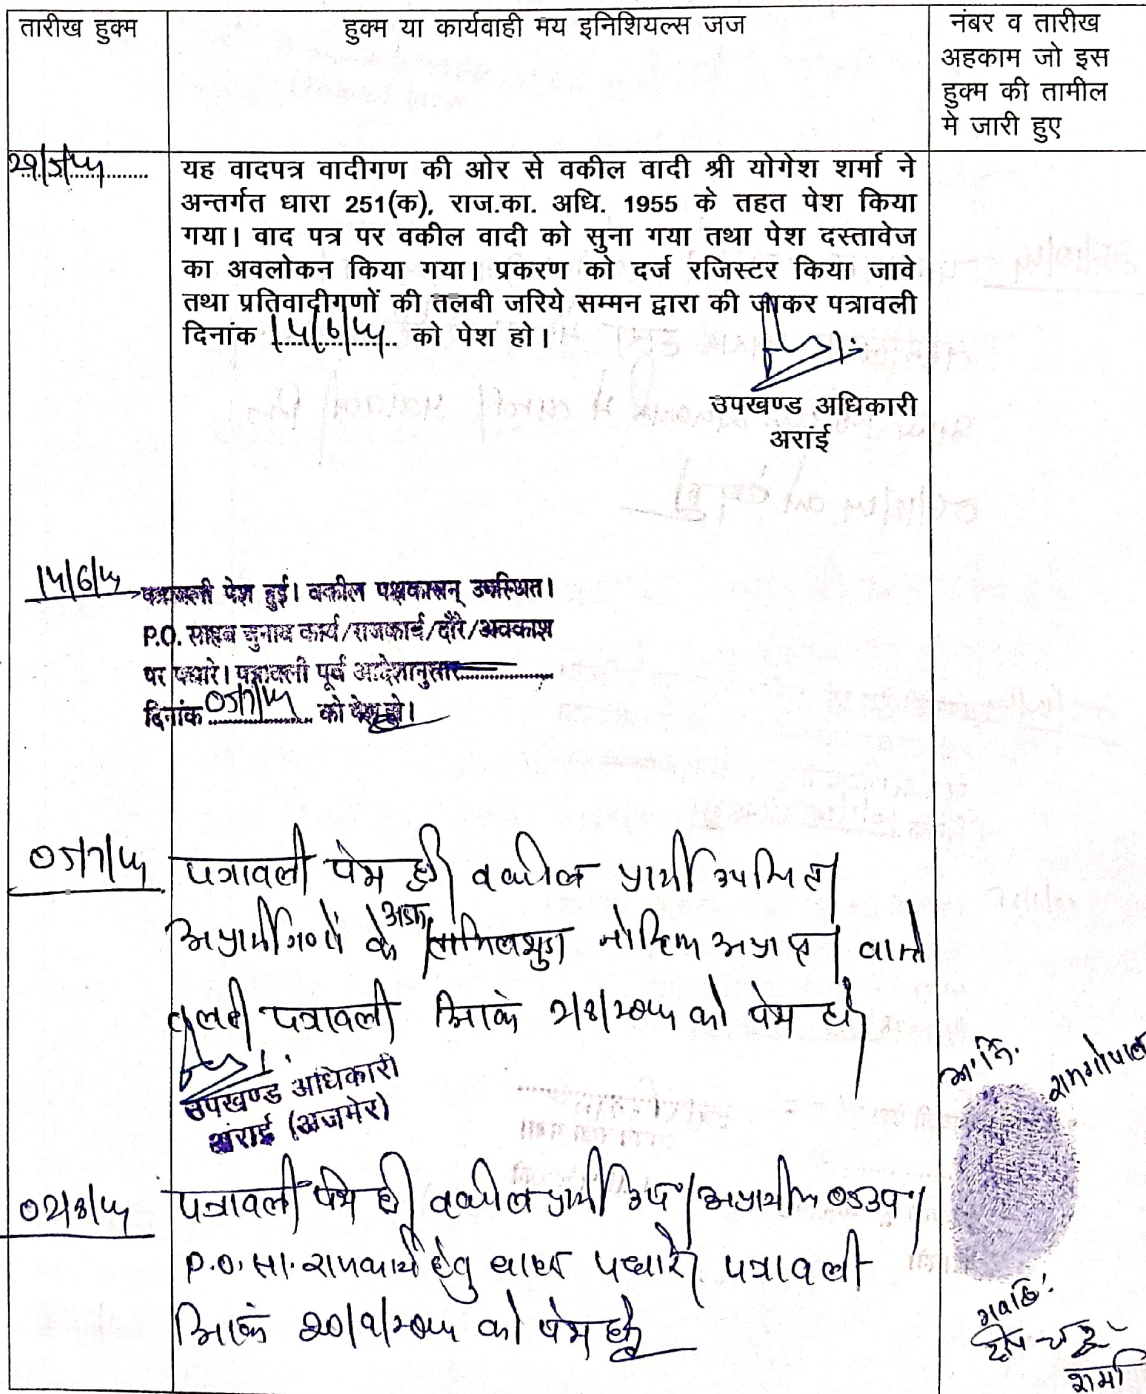 तारीख हुक्म
हुक्म या कार्यवाही मय इनिशियल्स जज
नंबर व तारीख
अहकाम जो इस
हुक्म की तामील
मे जारी हुए
यह वादपत्र वादीगण की ओर से वकील वादी श्री योगेश शर्मा ने
अन्तर्गत धारा 251(क), राज.का. अधि. 1955 के तहत पेश किया
गया। वाद पत्र पर वकील वादी को सुना गया तथा पेश दस्तावेज
का अवलोकन किया गया। प्रकरण को दर्ज रजिस्टर किया जावे
तथा प्रतिवादीगणों की तलबी जरिये सम्मन द्वारा की जाकर पत्रावली
दिनांक को पेश हो।
उपखण्ड अधिकारी
अरांई
पत्रावली पेश हुई। वकील पक्षकारान् उपस्थित।
P.O. साहब चुनाव कार्य/राजकार्य/दौरे/अवकाश
पर पधारे। पत्रावली पूर्व आदेशानुसार
दिनांक को पेश हो।
पत्रावली पेश हुई वकील प्रार्थी उपस्थित।
अप्रार्थीगणों के नोटिस अप्राप्त। वास्ते
तलबी पत्रावली को पेश हो
उपखण्ड अधिकारी
अरांई (अजमेर)
पत्रावली पेश हुई वकील प्रार्थी उप।
P.O. सा. राजकार्य हेतु बाहर पधारे पत्रावली
को पेश हो
अ.नि.
रामगोपाल
शर्मा